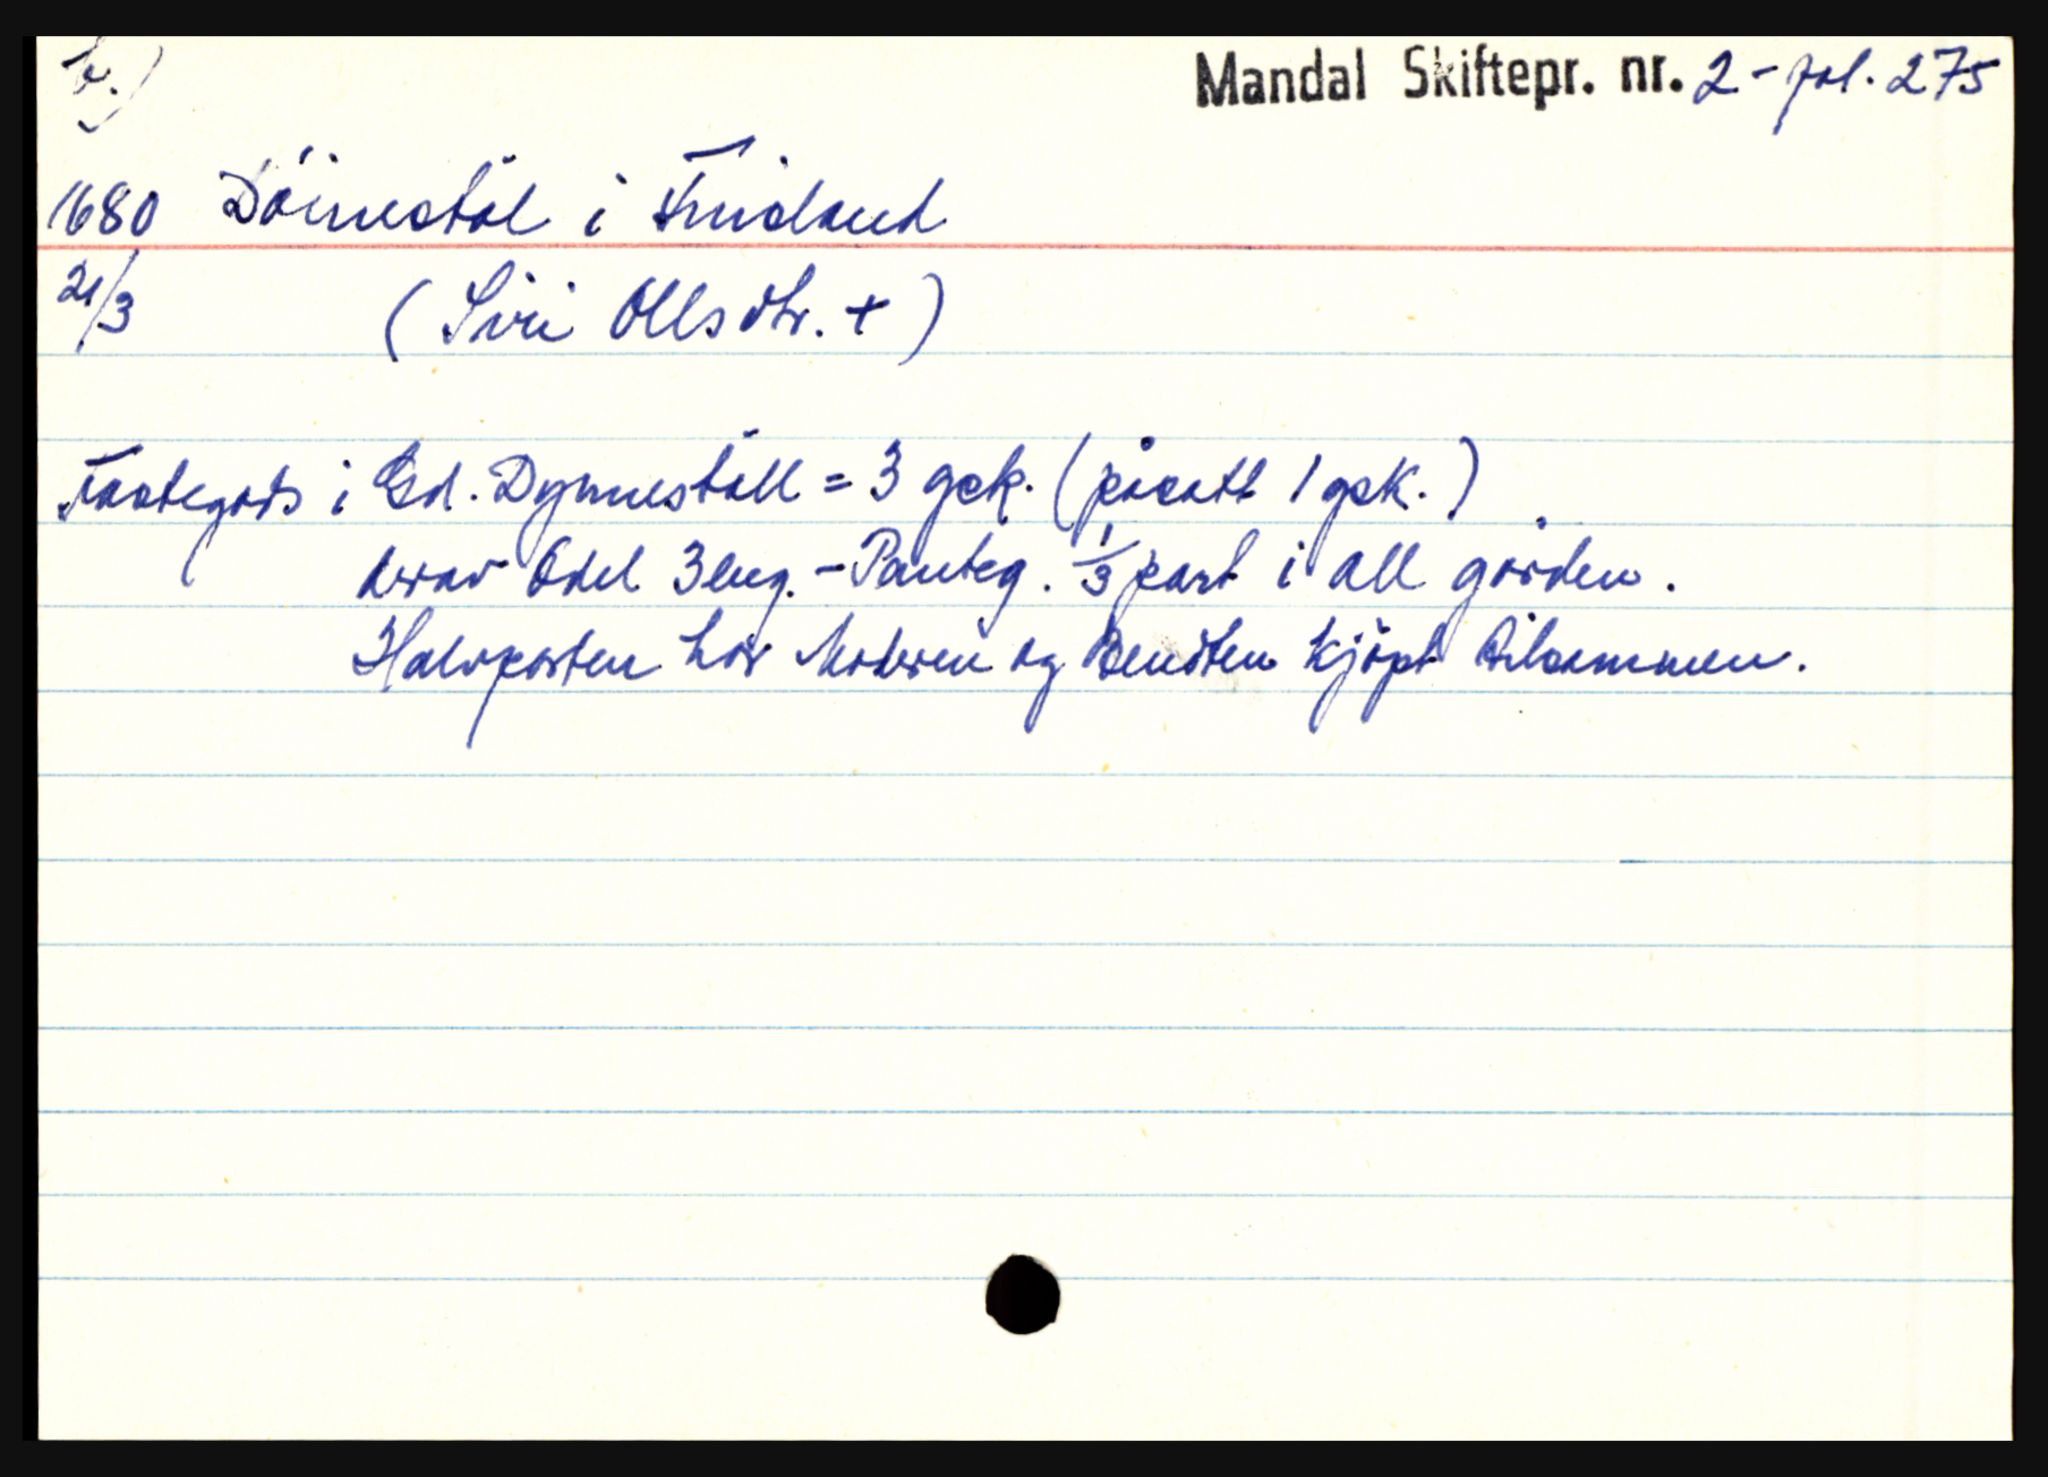 b.)
Mandal Skiftepr. nr. 2 - fol. 275
1680 Döinestøl i Finsland
21/3 (Siri Ollsdtr. +)
Faategods i Gd. Dynnestøll = 3 gsk. (påsatt 1 gsk.)
derav Odel 3 eng. - Panteg. 1/3 part i all gården.
Halvparten har Moderen og Bendten kjöpt tilsammen.